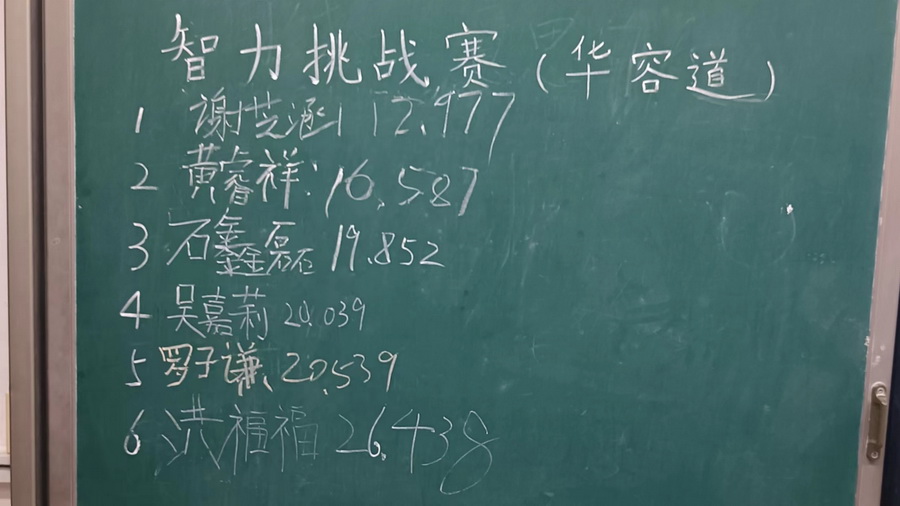 智力挑战赛(华容道)
1 谢芸涵 12.977
2 黄睿祥:16.587
3 石鑫磊 19.852
4 吴嘉莉 20.039
5 罗子谦、20.539
6 洪福福 26.438